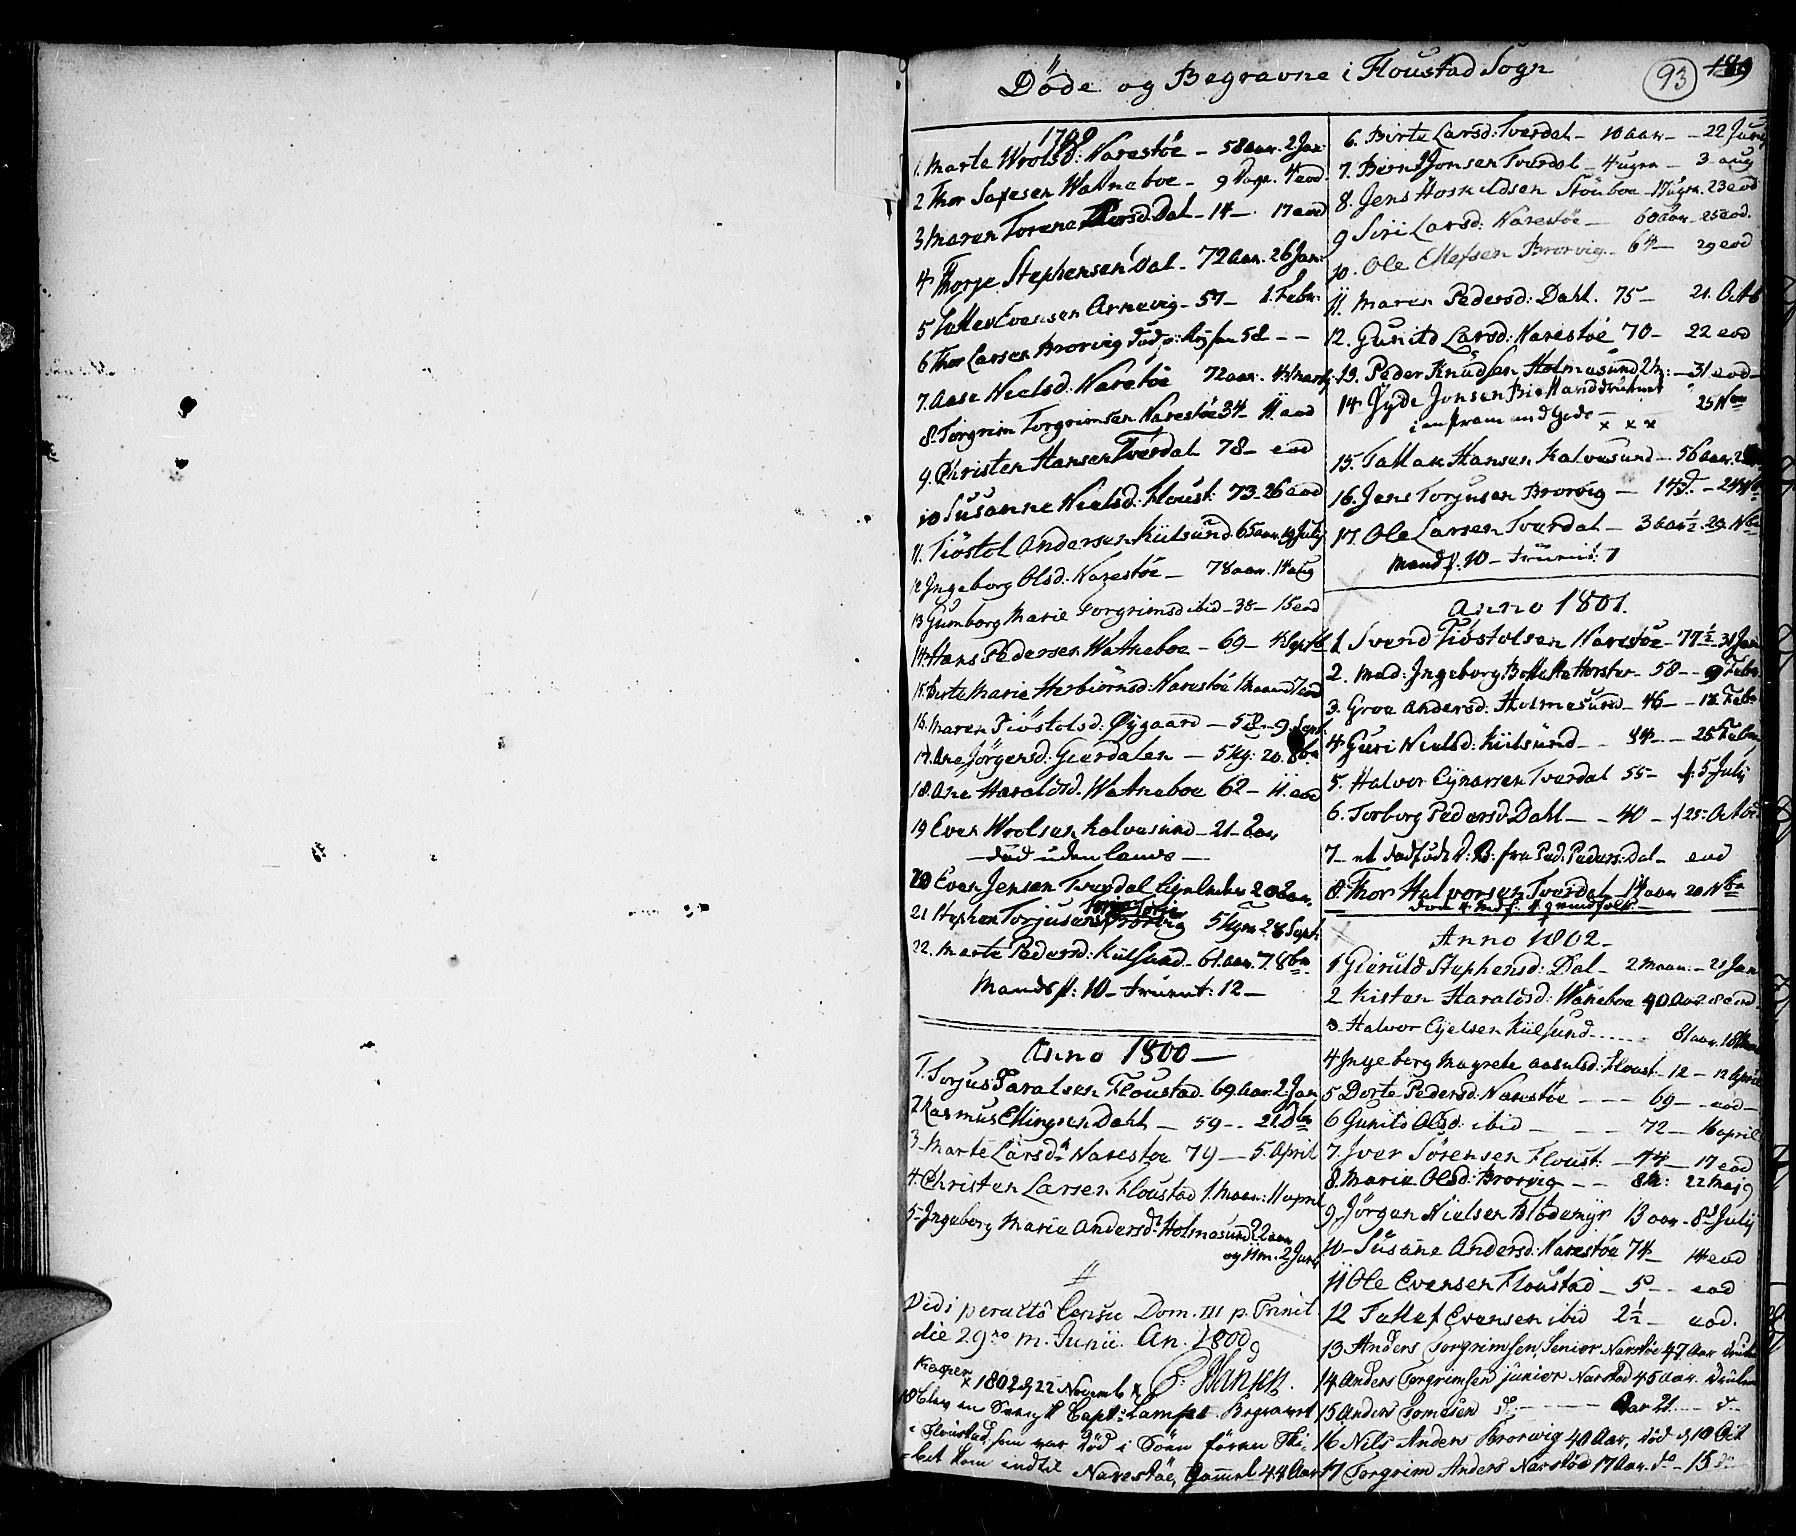 Döde og Begravne i Floustad Sogn
93
189
1799
1. Marte Wrolsd: Narestöe - 58 aar. 2 Jan:
2 Thor Watneboe - 9 Dage. 4 eod.
3 Maren Torene Dal - 14 -. 17 eod
4 Thorje Stephensen Dal - 72 aar. 26 Jan:
5 Tallev Evensen Arnevig - 57 - 1. Febr.
6 Thor Larsen Brorvig 52 - -
7. Aase Nielsd: Narestöe 72 aar. 4 Marts
8. Torgrim Torgrimsen Narestöe 34 - 11. eod
9. Christen Hansen Tverdal 78 - eod
10 Susanne Nielsd: Floust: 73. 26 eod
11. Tiöstol Andersen Kiilsund 65 aar. July
12 Ingeborg Olsd: Narestöe - 78 aar. 14 aug
13 Gumborg Marie Torgrimsd ibid - 38 - 15 eod
14. Hans Pedersen Watneboe - 69 - 4 Septb
15. Birte Marie Herbiörnsd: Narestöe 1 maaned 7 eod
16. Maren Tiöstolsd. Øygaard - 58 - 9. Sept.
17. Ane Jörgensd: Gierdalen - 5 Ug: 20. 8br
18. Ane Haraldsd. Watneboe 62 - 11. eod
19 Even Wrolsen Kalvesund - 21 - aar
- död uden lands -
20 Even Jensen Tverdal 20 aar.
21 Stephen Torjusen Brorvig 5 Ugr. 28 Sept.
22. Marte Pedersd: Kiilsund - 61. aar. 7. 8br
Mandsk: 10 - fruent: 12 -
Anno 1800 -
1. Torjus Taralsen Floustad 69. Aar. 2. Jan
2. Rasmus Ellingsen Dahl - 59 -. 21.
3. Marte Larsd. Narestöe 79 - 5. April
4. Christen Larsen Floustad 1. Maan: 11 april
5. Ingeborg Marie Andersd: Holmesund 22 aar
og 11 m. 2 Juni
Vidi peracto Censu Dom. III p. Trinit
die 29no m. Junii. An. 1800
P: Hansen.
x 1802 d 22 Novemb x
18 Blev en Capt: Begravet
i Floustad, som var död i Söen förend
kom indtil Narestöe, Gammel 44 Aar
6. Birte Larsd: Tverdal - 10 aar - - 22 Juny
7. Biörn Jonsen Tverdal - 4 ugr - 3 aug
8. Jens Hoskildsen Stöeboe - 17 ugr. 23 eod
9 Siri Larsd: Narestöe - 60 aar - 25 eod.
10. Ole Ellefsen Brorvig. 64 - 29 eod
11. Maren Pedersd: Dahl. 75 - 21. Octb
12. Gunild Larsd: Narestöe 70 - 22 eod
13. Peder Knudsen Holmesund - 31 eod -
14 Gyde Jonsen
i en pram ved Gode - x x x 25 Nov
15. Tallak Hansen Kalvesund - 56 aar.
16. Jens Torjusen Brorvig - 14 d. - 24 Nbr
17. Ole Larsen Tverdal - 3 aar ½. 29. Nbr
Mandk: 10 - fruent: 7
Anno 1801.
1 Svend Tiöstolsen Narestöe - 77 ½ - 31 Jan
2. Mad: Ingeborg Horsten - 58 - - 9 Febr.
3. Groe Andersd: Holmesund - 46 - - 18 Febr
4 Guri Nielsd: Kiilsund - - 84 - - 25 Febr
5. Halvor Ejnersen Tverdal 55 - 5 July
6. Torborg Pedersd. Dahl - - 40 - 25 Octob
7 - et dødfødt D: B: fra Ped. Peders: Dal - eod
8. Thor Halvorsen Tverdal - 14 aar 20 Nbr
Anno 1802 -
1 Gierild Stephensd: Dal - 2 Maan: - 21 Jan
2 Kisten Haraldsd: Watneboe 40 Aar. 28 eod
3. Halvor Ejelsen Kiilsund - - - - - 81 aar.
4 Ingeborg Magrete Aasulsd: Floust - 12 - 12 April
5 Dorte Pedersd: Narestöe - - - 69 - - eod -
6 Gunild Olsd: ibid - - - - 72 - 16 april
7. Iver Sörensen Floust: - 44 - 17 eod
8. Maria Olsd: Brorvig - - 22 Maj
9 Jörgen Nielsen Blödemyr 13 aar - 8d July
10 - Susanne Andersd: Narestöe 74 - 14 eod
11 Ole Evensen Floustad - 5 - - eod
12 Tallef Evensen ibid 2½ - eod.
13 Anders Torgrimsen, Senior Narstöe 47 Aar
14 Anders Torgrimsend junior Narstöe 45 aar.
15 Anders Tomesen d: - - - - Aar 21 - - d -
16 Nils Anders Brorwig 40 Aar, död d 10 Oct
17 Torgrim Anders Narstöe 17 Aar. do - 15 do